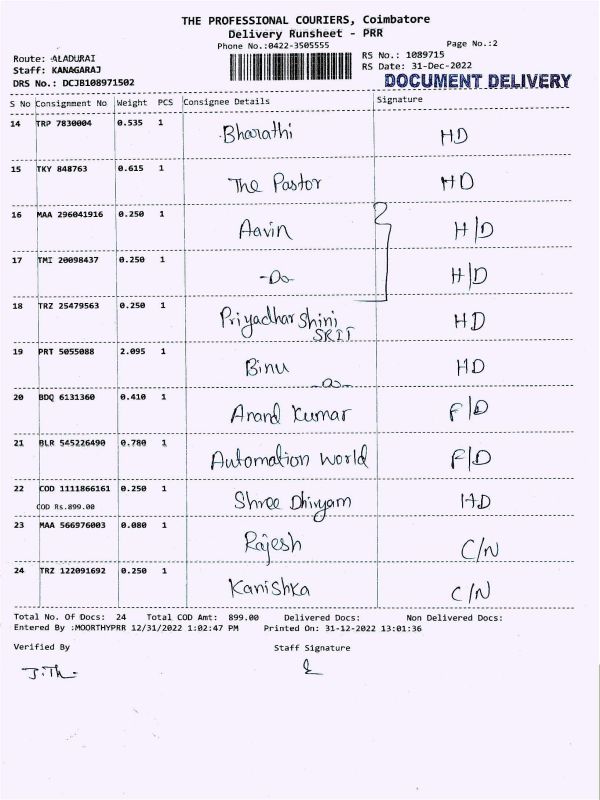 THE PROFESSIONAL COURIERS, Coimbatore
Delivery Runsheet - PRR
Phone No.:0422-3505555 Page No.:2
Route: ALADURAI RS No.: 1089715
Staff: KANAGARAJ RS Date: 31-Dec-2022
DRS No.: DCJB108971502 DOCUMENT DELIVERY
S No Consignment No Weight PCS Consignee Details Signature
14 TRP 7830004 0.535 1 Bharathi HD
15 TKY 848763 0.615 1 The Pastor HD
16 MAA 296041916 0.250 1 Aavin H/D
17 TMI 20098437 0.250 1 -Do- H/D
18 TRZ 25479563 0.250 1 Priyadharshini HD
SRIT
19 PRT 5055088 2.095 1 Binu HD
20 BDQ 6131360 0.410 1 Anand Kumar F/D
21 BLR 545226490 0.780 1 Automation World F/D
22 COD 1111866161 0.250 1 Shree Dhivyam HD
COD Rs.899.00
23 MAA 566976003 0.080 1 Rajesh C/N
24 TRZ 122091692 0.250 1 Kanishka C/N
Total No. Of Docs: 24 Total COD Amt: 899.00 Delivered Docs: Non Delivered Docs:
Entered By :MOORTHYPRR 12/31/2022 1:02:47 PM Printed On: 31-12-2022 13:01:36
Verified By Staff Signature